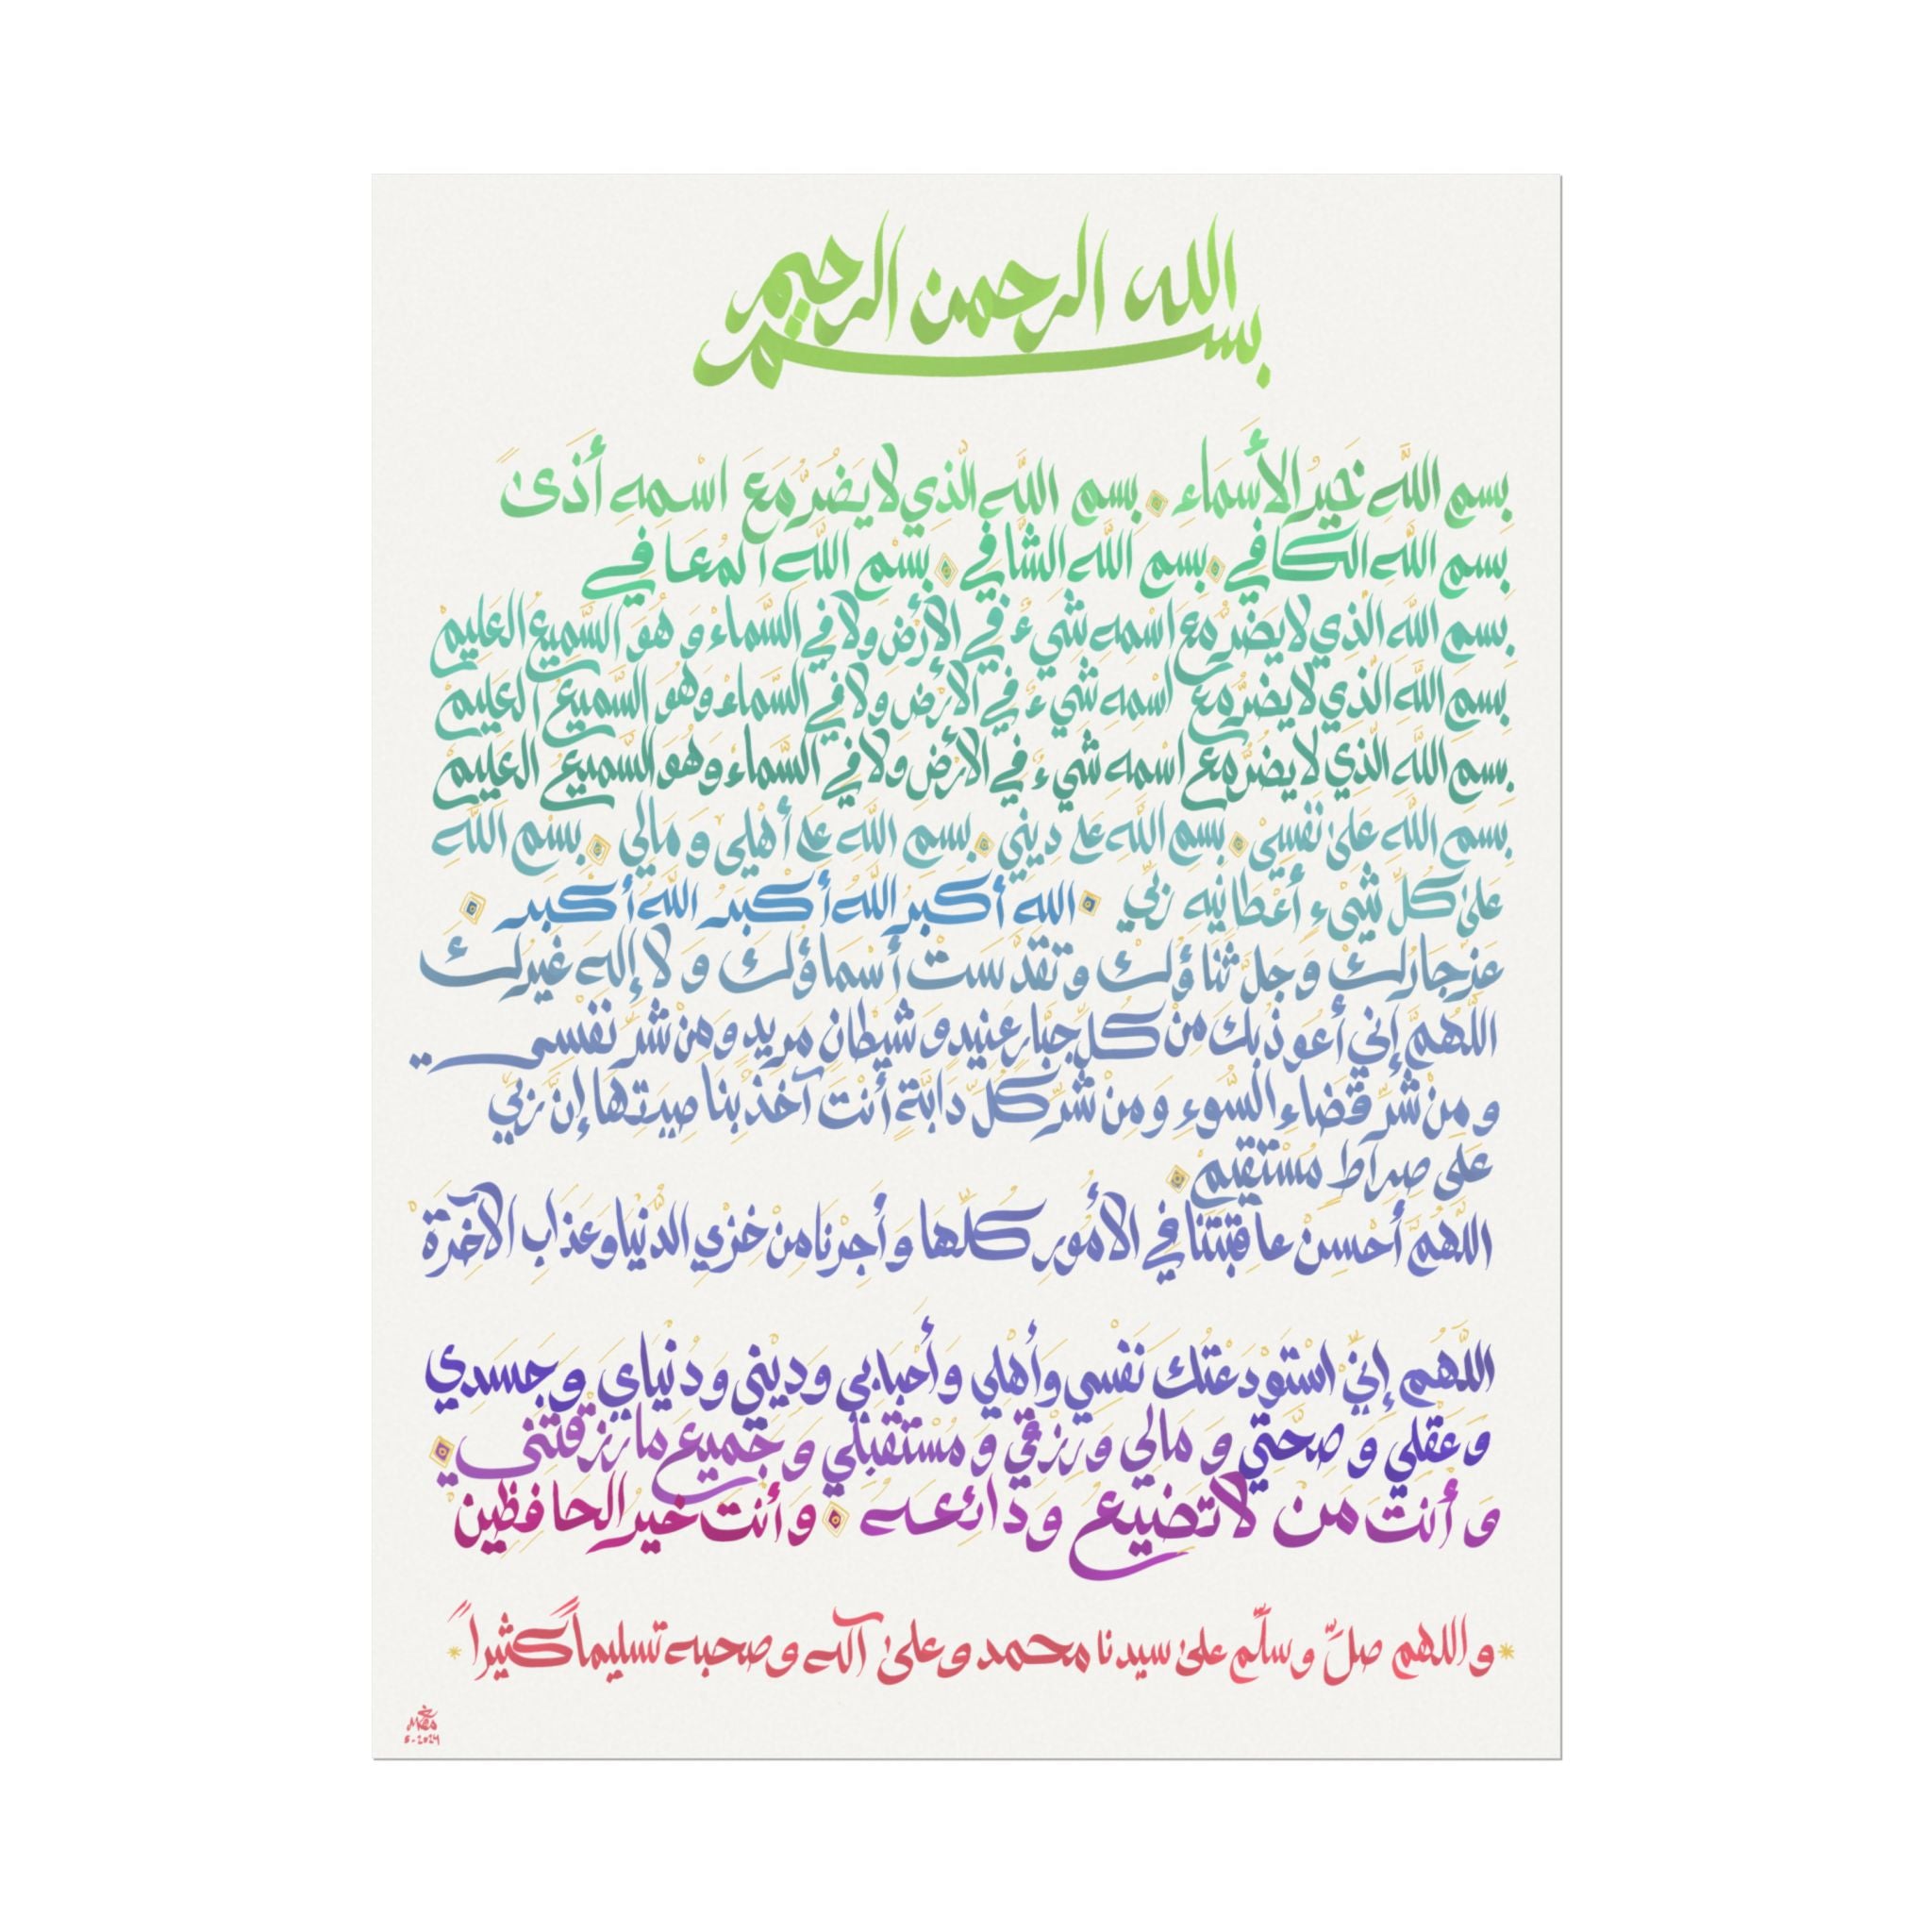 بسم الله الرحمن الرحيم
بسم الله خير الأسماء بسم الله الذي لا يضر مع اسمه أذى
بسم الله الكافي بسم الله الشافي بسم الله المعافي
بسم الله الذي لا يضر مع اسمه شيء في الأرض ولا في السماء وهو السميع العليم
بسم الله الذي لا يضر مع اسمه شيء في الأرض ولا في السماء وهو السميع العليم
بسم الله الذي لا يضر مع اسمه شيء في الأرض ولا في السماء وهو السميع العليم
بسم الله على نفسي بسم الله على ديني بسم الله على أهلي و مالي بسم الله
على كل شيء أعطانيه ربي الله أكبر الله أكبر الله أكبر
عز جارك وجل ثناؤك وتقدست أسماؤك ولا إله غيرك
اللهم إني أعوذ بك من كل جبار عنيد و شيطان مريد و من شر نفسي
و من شر قضاء السوء و من شر كل دابة أنت آخذ بناصيتها إن ربي
على صراط مستقيم
اللهم أحسن عاقبتنا في الأمور كلها و أجرنا من خزي الدنيا وعذاب الآخرة
اللهم إني استودعتك نفسي وأهلي وأحبابي وديني ودنياي وجسدي
وعقلي و صحتي و مالي ورزقي و مستقبلي و جميع ما رزقتني
و أنت من لا تضيع ودائعه و أنت خير الحافظين
و اللهم صل وسلم على سيدنا محمد وعلى آله وصحبه تسليما كثيرا
MKeo
5-2024